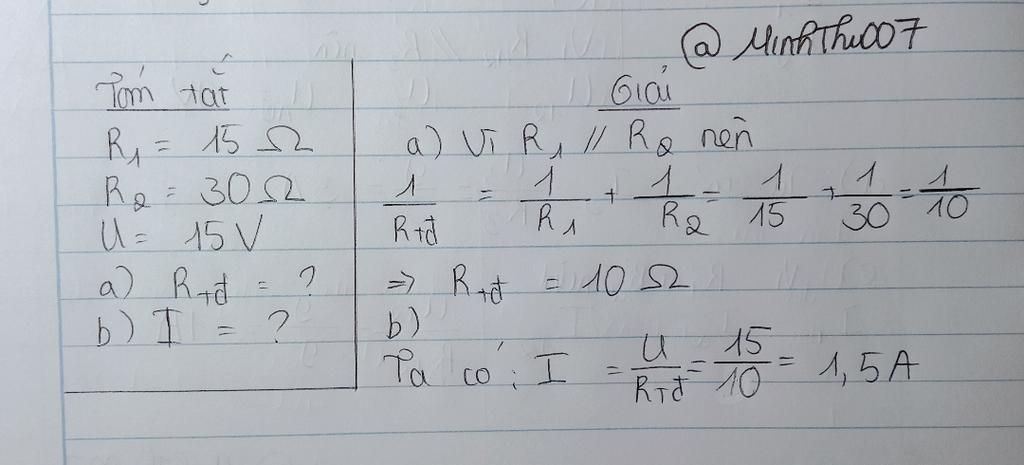 @MinhThu007
Tóm tắt
R₁ = 15 Ω
R₂ = 30 Ω
U = 15 V
a) Rtđ = ?
b) I = ?
Giải
a) Vì R₁ // R₂ nên
1/Rtđ = 1/R₁ + 1/R₂ = 1/15 + 1/30 = 1/10
=> Rtđ = 10 Ω
b)
Ta có: I = U/Rtđ = 15/10 = 1,5 A